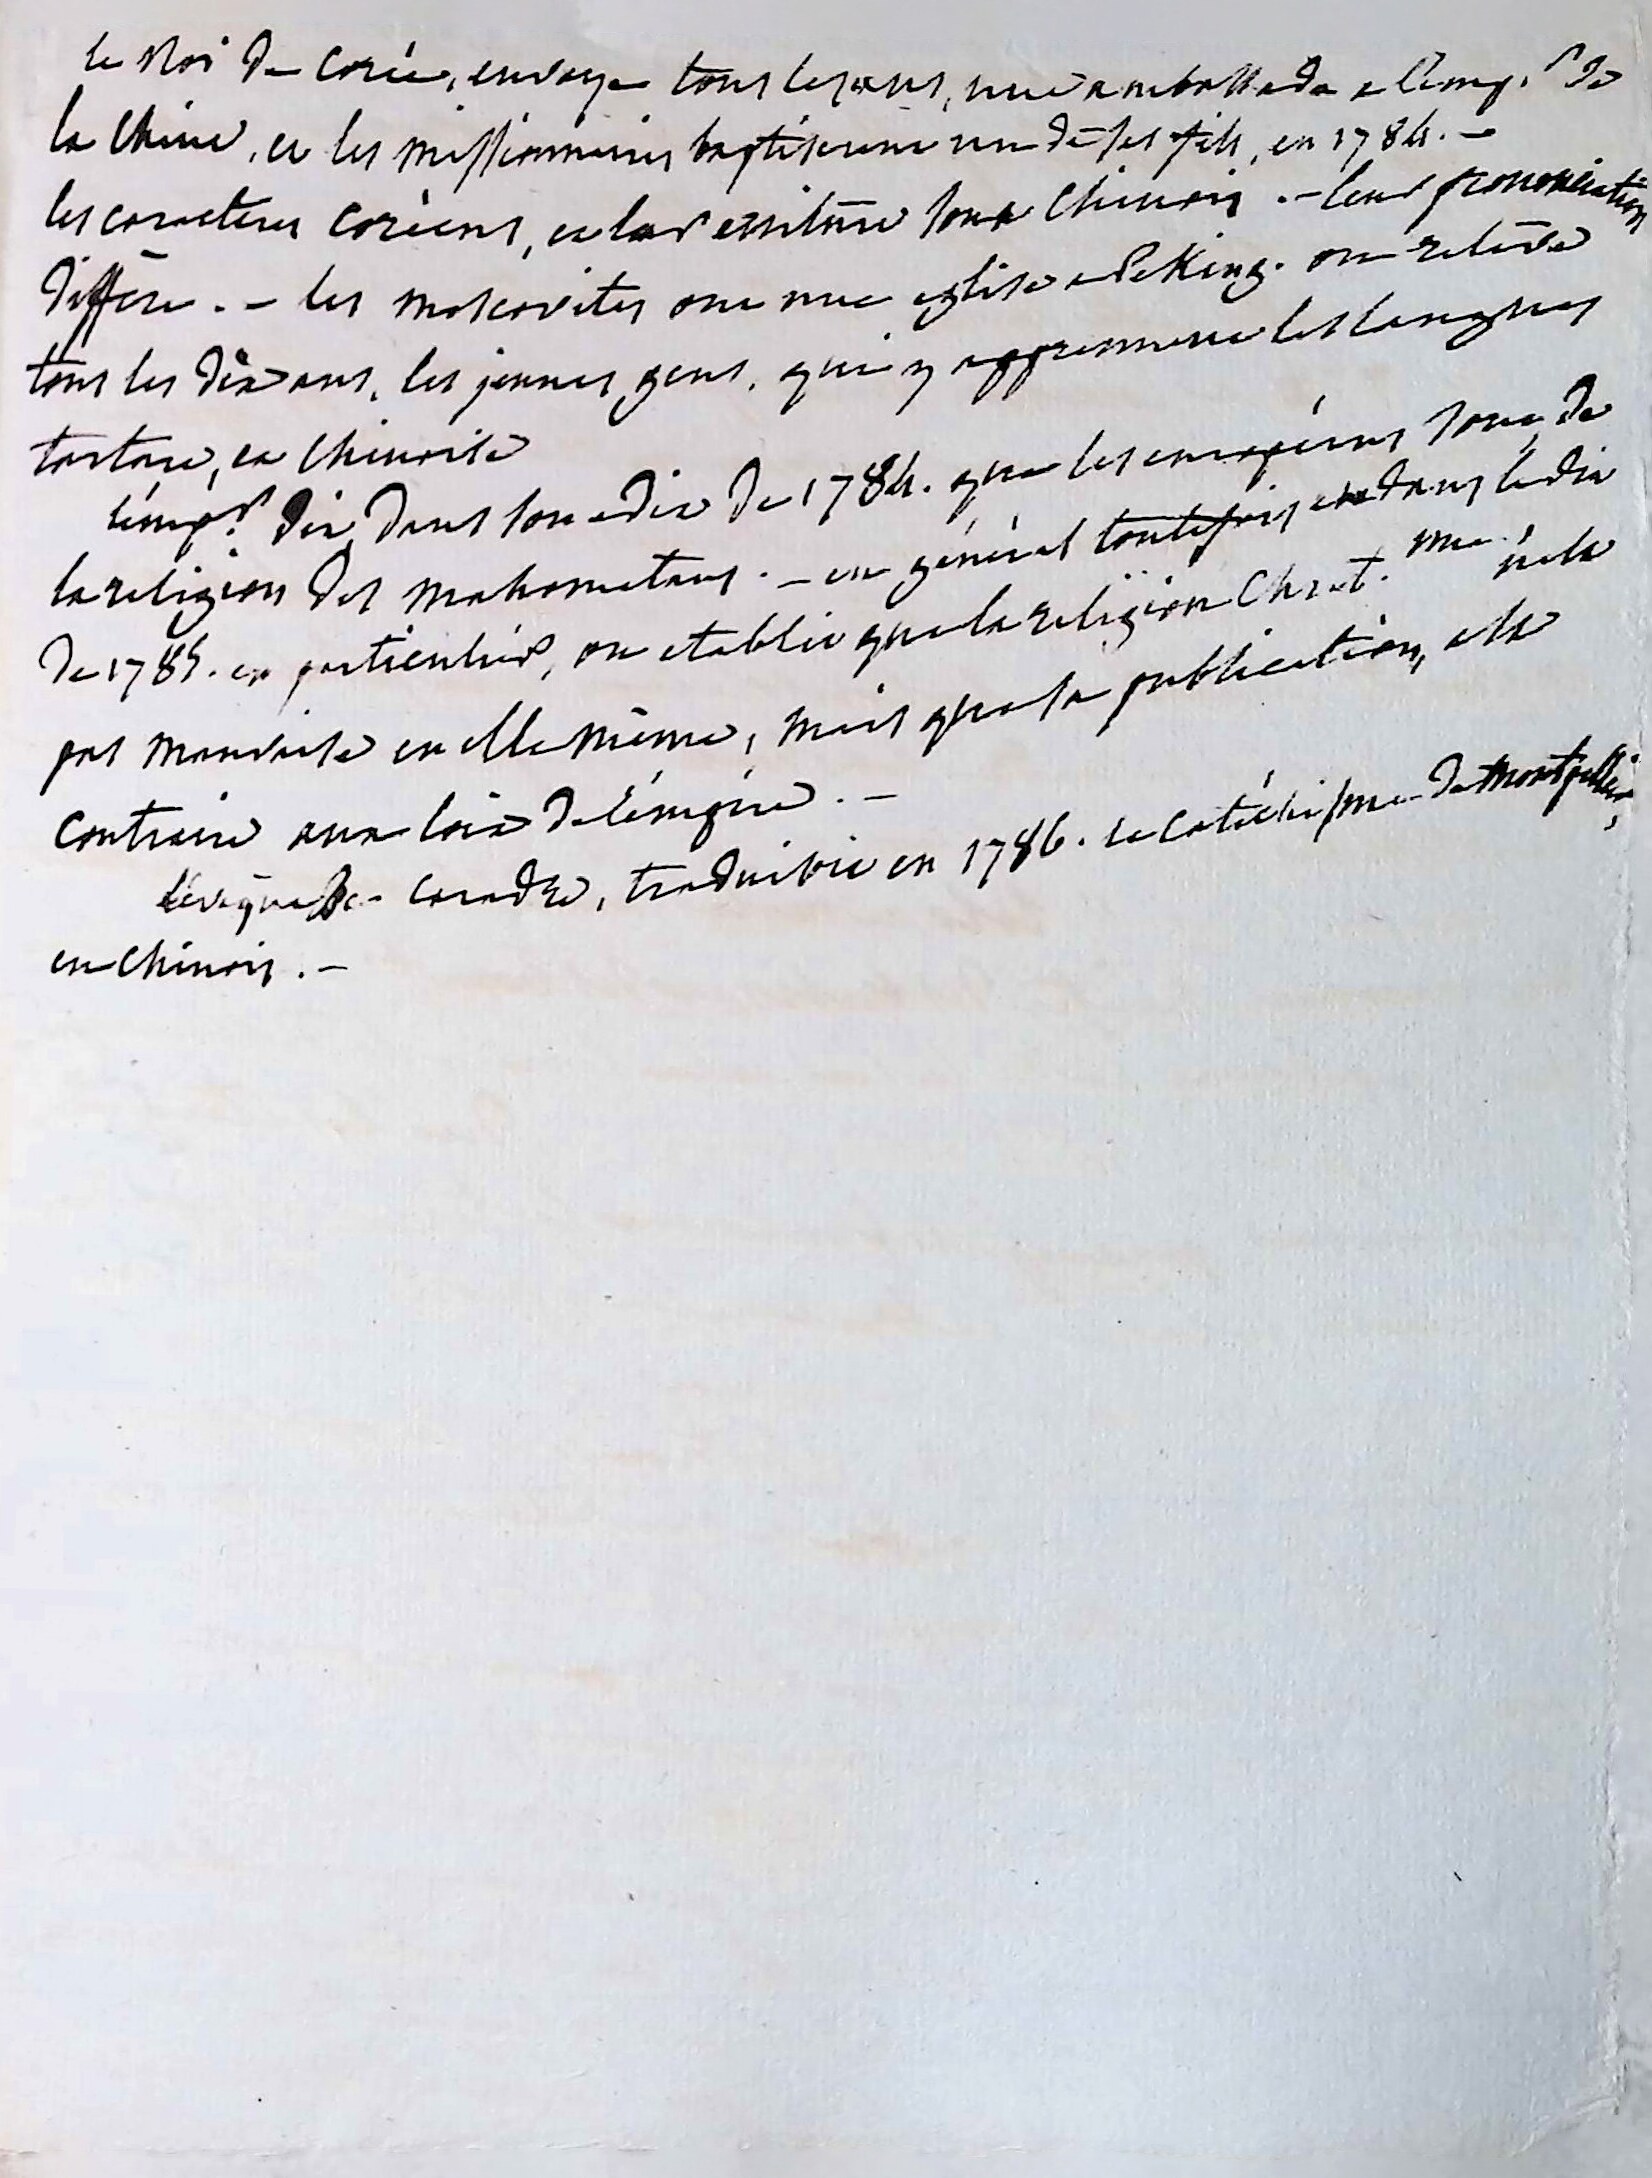 le Roi de Corée, envoye tous les ans, une ambassade a l'emp.r de
la Chine, et les missionnaires baptiserent un de ses fils, en 1784. –
les caracteres coréens, et leur ecriture sont Chinois. – leur prononciation
differe. – les moscovites ont une eglise a Peking. on releve
tous les dix ans, les jeunes gens, qui y apprennent les langues
tartare, et Chinoise
l'emp.r dit, dans son edit de 1784. que les européens sont de
la religion des mahometans. – en général toutefois et dans l'edit
de 1785. en particulier, on etablit que la religion Chret. n'est
pas mauvaise en elle même, mais que sa publication, est
contraire aux loix de l'empire. –
l'évêque de Caradre, traduisit en 1786. le catéchisme de Montpellier,
en Chinois. –